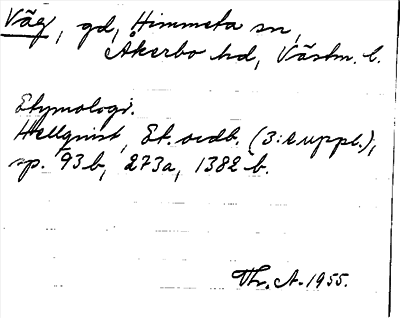 Väg, gd, Himmeta sn,
Åkerbo hd, Västm. l.
Etymologi.
Hellquist, Et. ordb. (3:e uppl.),
sp. 93b, 273a, 1382b.
Thr. A. 1955.